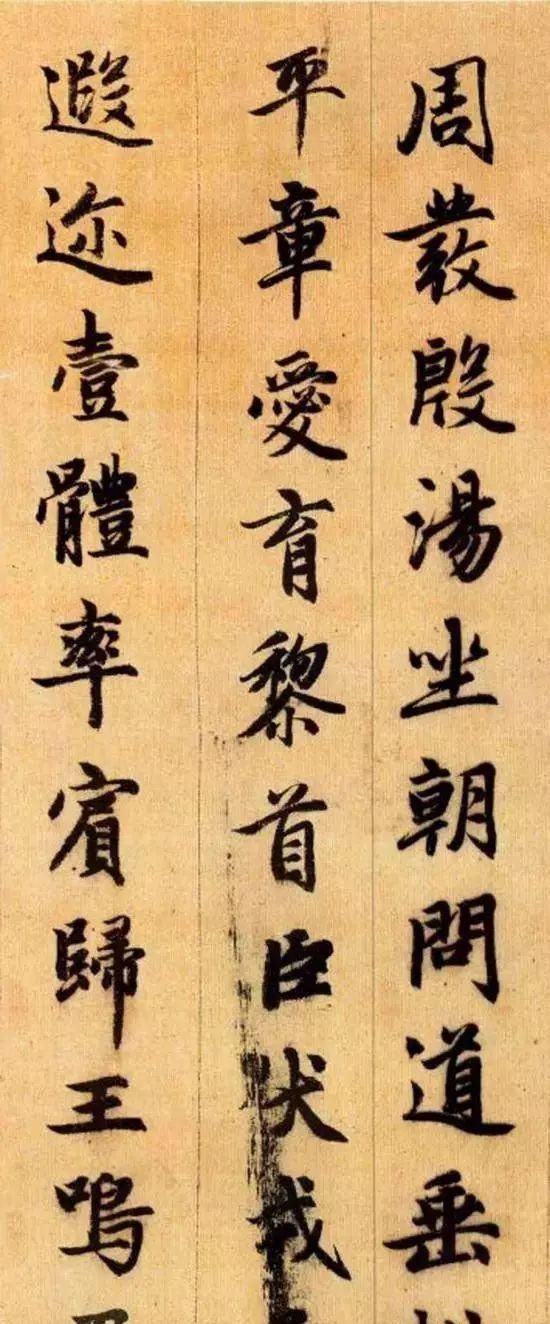 周發殷湯坐朝問道垂
平章愛育黎首臣伏戎
遐迩壹體率賓歸王鳴